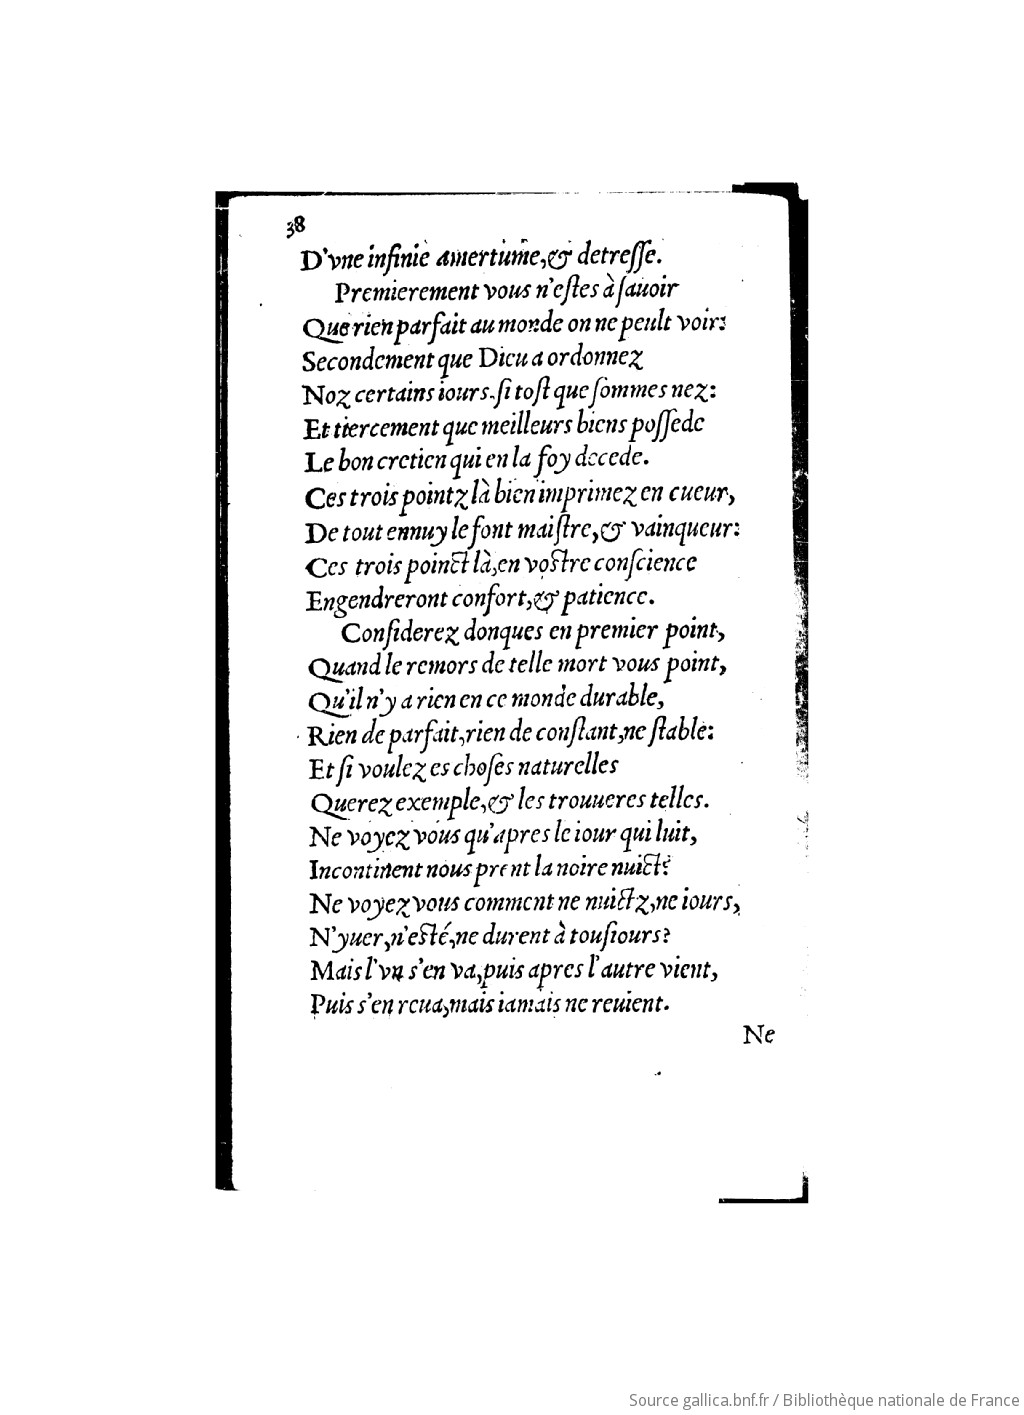 38
D'vne infinie amertume, & detresse.
Premierement vous n'eſtes à ſauoir
Que rien parfait au monde on ne peult voir:
Secondement que Dieu a ordonnez
Noz certains iours ſi toſt que ſommes nez:
Et tiercement que meilleurs biens poſſede
Le bon cretien qui en la foy decede.
Ces trois pointz là bien imprimez en cueur,
De tout ennuy le font maiſtre, & vainqueur:
Ces trois poinct là, en voſtre conſcience
Engendreront confort, & patience.
Conſiderez donques en premier point,
Quand le remors de telle mort vous point,
Qu'il n'y a rien en ce monde durable,
Rien de parfait, rien de conſtant, ne ſtable:
Et ſi voulez es choſes naturelles
Querez exemple, & les trouueres telles.
Ne voyez vous qu'apres le iour qui luit,
Incontinent nous prent la noire nuict?
Ne voyez vous comment ne nuictz, ne iours,
N'yuer, n'eſté, ne durent à touſiours?
Mais l'vn s'en va, puis apres l'autre vient,
Puis s'en reua, mais iamais ne reuient.
Ne
Source gallica.bnf.fr / Bibliothèque nationale de France